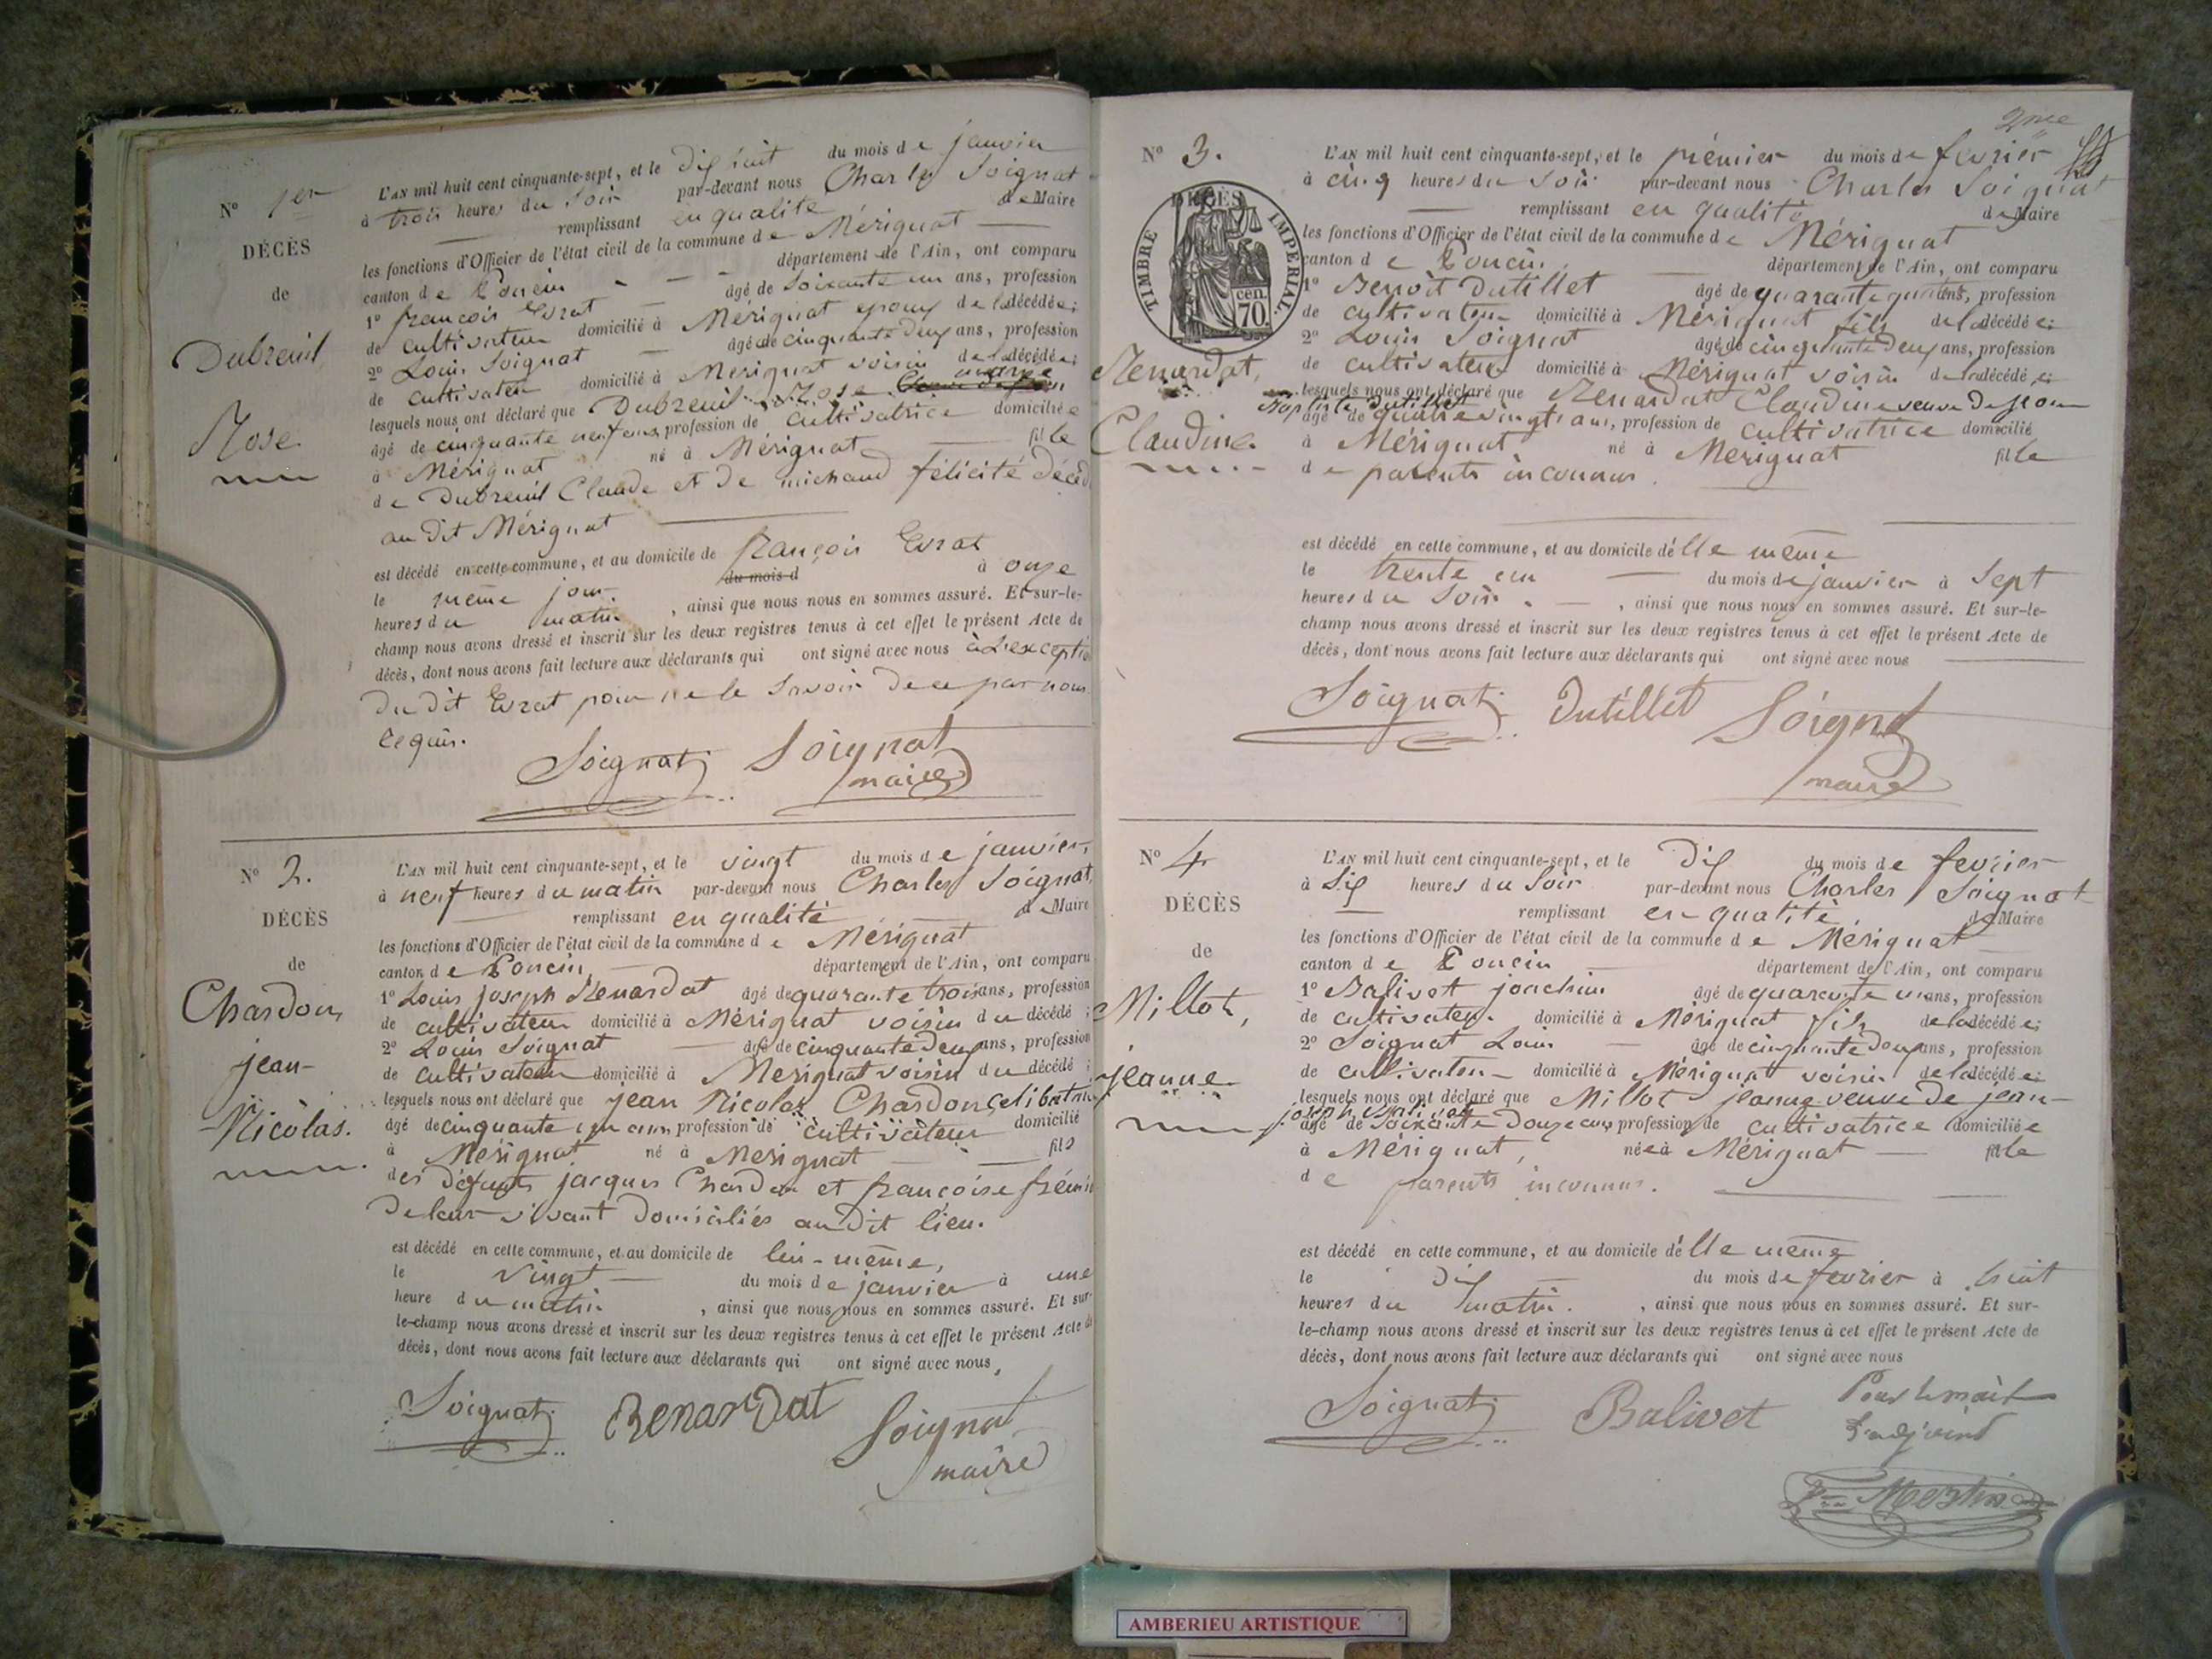 No 1er
DÉCÈS
de
Dubreuil
Rose
L'AN mil huit cent cinquante-sept, et le dix huit du mois de janvier
à trois heures du soir par-devant nous Charles Soignat
remplissant en qualité de Maire
les fonctions d'Officier de l'état civil de la commune de Mérignat
canton de Poncin département de l'Ain, ont comparu
1o françois Evrat âgé de Soixante un ans, profession
de cultivateur domicilié à Mérignat epoux de la décédée;
2o Louis Soignat âgé de cinquante deux ans, profession
de cultivateur domicilié à Mérignat voisin de la décédée;
lesquels nous ont déclaré que Dubreuil Rose
âgé de cinquante neuf ans, profession de cultivatrice domiciliée
à Mérignat né à Mérignat fille
de Dubreuil Claude et de michaud félicité décédé
au dit Mérignat
est décédé en cette commune, et au domicile de françois Evrat
le même jour du mois d à onze
heures du matin, ainsi que nous nous en sommes assuré. Et sur-le-
champ nous avons dressé et inscrit sur les deux registres tenus à cet effet le présent Acte de
décès, dont nous avons fait lecture aux déclarants qui ont signé avec nous à L'exception
du dit Evrat pour ne le savoir de ce par nous
requis.
Soignat Soignat
maire
No 2.
DÉCÈS
de
Chardon,
jean-
Nicolas.
L'AN mil huit cent cinquante-sept, et le vingt du mois de janvier,
à neuf heures du matin par-devant nous Charles Soignat,
remplissant en qualité de Maire
les fonctions d'Officier de l'état civil de la commune de Mérignat
canton de Poncin, département de l'Ain, ont comparu
1o Louis joseph Renardat âgé de quarante trois ans, profession
de cultivateur domicilié à Mérignat voisin du décédé;
2o Louis Soignat âgé de cinquante deux ans, profession
de cultivateur domicilié à Mérignat voisin du décédé;
lesquels nous ont déclaré que jean Nicolas Chardon, Celibataire
âgé de cinquante un ans profession de cultivateur domicilié
à Mérignat né à Mérignat fils
des défunts jacques Chardon et françoise
De leur vivant Domiciliés au dit lieu.
est décédé en cette commune, et au domicile de lui-même,
le vingt du mois de janvier à une
heure du matin, ainsi que nous nous en sommes assuré. Et sur-
le-champ nous avons dressé et inscrit sur les deux registres tenus à cet effet le présent Acte de
décès, dont nous avons fait lecture aux déclarants qui ont signé avec nous,
Soignat Renardat Soignat
maire
2me
No 3.
DÉCÈS
TIMBRE IMPERIAL
cen. 70
Renardat,
Claudine
L'AN mil huit cent cinquante-sept, et le prémier du mois de fevrier
à cinq heures du soir par-devant nous Charles Soignat
remplissant en qualité de Maire
les fonctions d'Officier de l'état civil de la commune de Mérignat
canton de Poncin département de l'Ain, ont comparu
1o Benoit Dutillet âgé de quarante ans, profession
de cultivateur domicilié à Mérignat fils de la décédée;
2o Louis Soignat âgé de cinquante deux ans, profession
de cultivateur domicilié à Mérignat voisin de la décédée;
lesquels nous ont déclaré que Renardat Claudine veuve de jean
Baptiste Dutillet
âgé de quatrevingt ans, profession de cultivatrice domicilié
à Mérignat né à Mérignat fille
de parents inconnus.
est décédé en cette commune, et au domicile d'elle même
le trente un du mois de janvier à Sept
heures du Soir, ainsi que nous nous en sommes assuré. Et sur-le-
champ nous avons dressé et inscrit sur les deux registres tenus à cet effet le présent Acte de
décès, dont nous avons fait lecture aux déclarants qui ont signé avec nous
Soignat Dutillet Soignat
maire
No 4
DÉCÈS
de
Millot,
jeanne
L'AN mil huit cent cinquante-sept, et le dix du mois de fevrier
à Six heures du Soir par-devant nous Charles Soignat
remplissant en qualité de Maire
les fonctions d'Officier de l'état civil de la commune de Mérignat
canton de Poncin département de l'Ain, ont comparu
1o Balivet joachim âgé de quarante un ans, profession
de cultivateur domicilié à Mérignat fils de la décédée;
2o Soignat Louis âgé de cinquante deux ans, profession
de cultivateur domicilié à Mérignat voisin de la décédée;
lesquels nous ont déclaré que Millot jeanne veuve de jean-
joseph Balivat
âgé de soixante douze ans profession de cultivatrice domiciliée
à Mérignat, née à Mérignat fille
de parents inconnus.
est décédé en cette commune, et au domicile d'elle même
le dix du mois de fevrier à huit
heures du matin, ainsi que nous nous en sommes assuré. Et sur-
le-champ nous avons dressé et inscrit sur les deux registres tenus à cet effet le présent Acte de
décès, dont nous avons fait lecture aux déclarants qui ont signé avec nous
Soignat Balivet Pour le maire
L'adjoint
AMBERIEU ARTISTIQUE